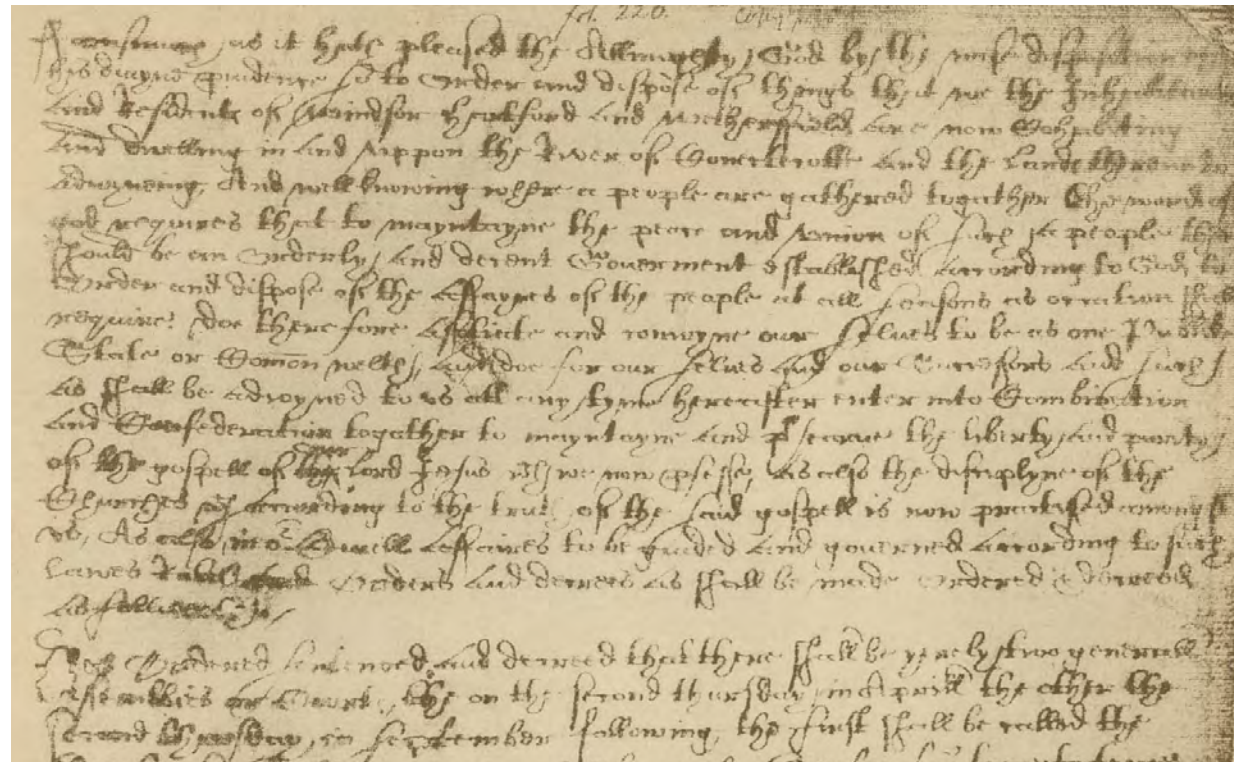 fol. 220. Copy
Forasmuch as it hath pleased the Allmighty God by the wise disposition of
his divyne pruidence so to Order and dispose of things that we the Inhabitants
and Residents of Windsor Hartford and Wethersfield are now Cohabiting
and dwelling in and uppon the River of Conectecotte and the Lands thereunto
adioyneing; And well knowing where a people are gathered togather the word of
god requires that to mayntayne the peace and union of such a people there
should be an orderly and decent Gouerment established according to God, to
Order and dispose of the affayres of the people at all seasons as occation shall
require: doe therefore assotiate and conioyne our selues to be as one Publike
State or Comōn welth, and doe for our selues and our Successors and such
as shall be adioyned to vs att any tyme hereafter enter into Combination
and Confederation togather to mayntayne and pʳsearue the liberty and purity
of the gospell of our Lord Jesus wᶜʰ we now pfesse, as also the disciplyne of the
Churches wᶜʰ according to the truth of the said gospell is now practised amongst
vs, As also in oʳ Civell Affaires to be guided and gouerned according to such
Lawes Rules Orders and decrees as shall be made ordered & decreed
as followeth:
It is Ordered sentenced and decreed that there shall be yerely two generall
Assemblies or Courts, the on the second thursday in Aprill, the other the
second thursday in september following, the first shall be called the